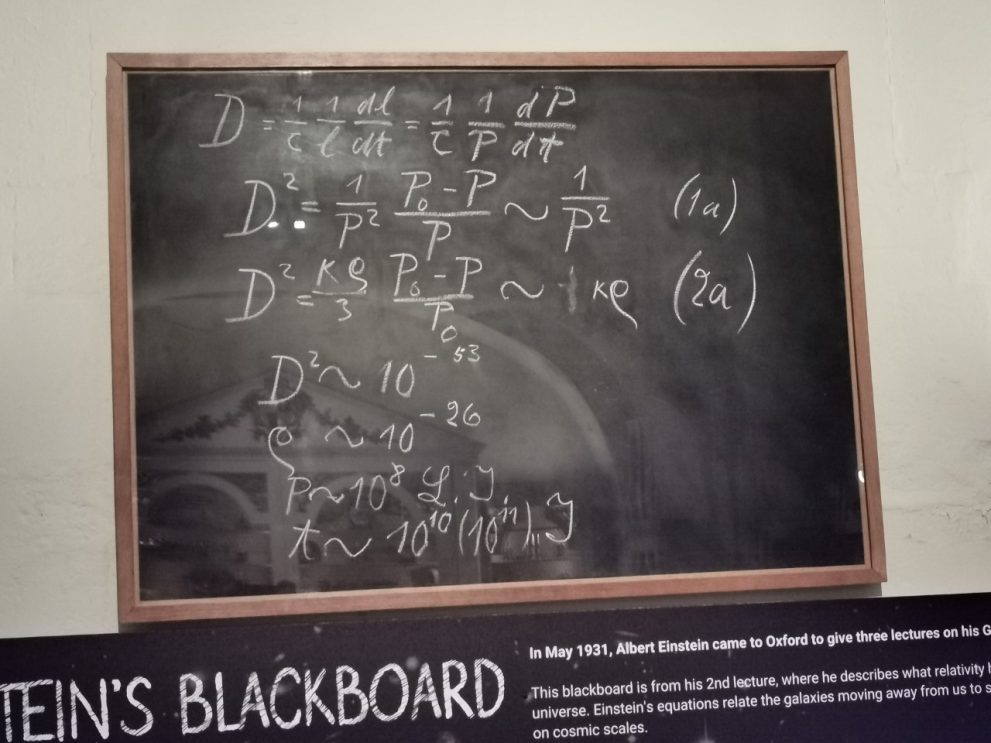 D = 1/c 1/l dl/dt = 1/c 1/P dP/dt
D² = 1/P² P₀-P/P ~ 1/P² (1a)
D² = κρ/3 P₀-P/P₀ ~ κρ (2a)
D² ~ 10⁻⁵³
ρ ~ 10⁻²⁶
P ~ 10⁸ L.J.
t ~ 10¹⁰(10¹¹) J
TEIN'S BLACKBOARD
In May 1931, Albert Einstein came to Oxford to give three lectures on his G
This blackboard is from his 2nd lecture, where he describes what relativity
universe. Einstein's equations relate the galaxies moving away from us to s
on cosmic scales.